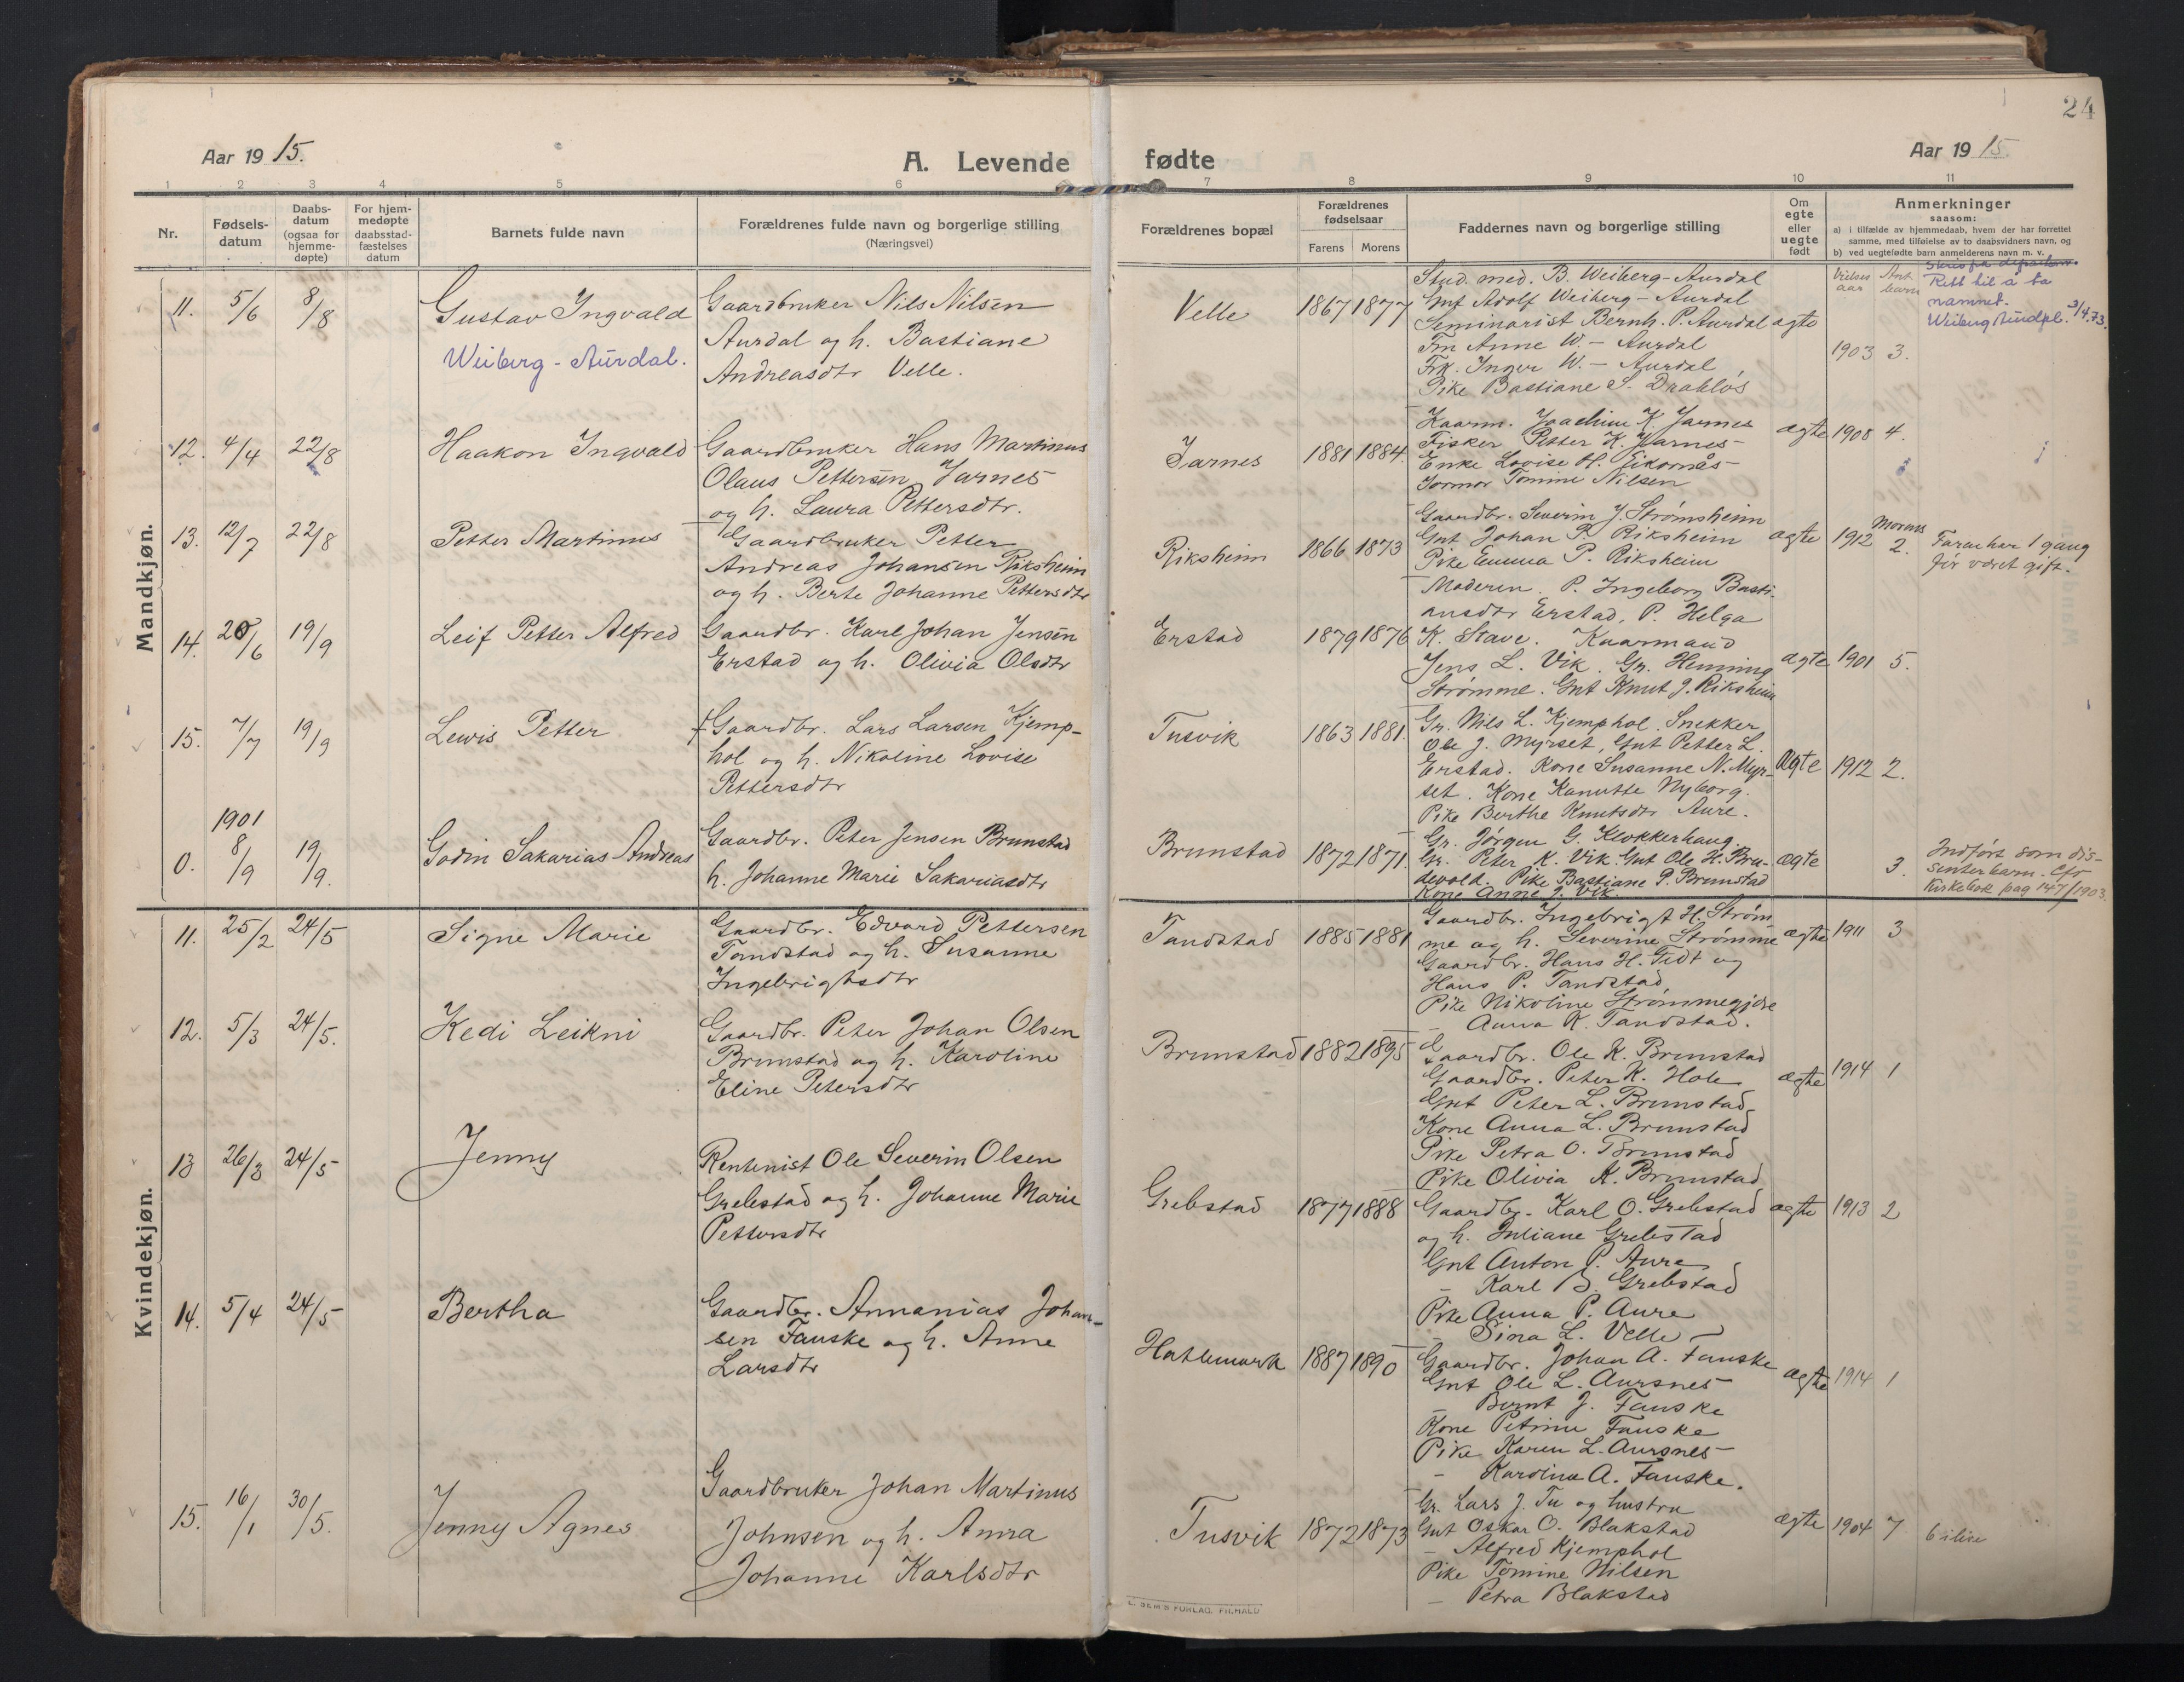 24
Aar 19 15.
A. Levende fødte
Aar 19 15.
1 2 3 4 5 6 7 8 9 10 11
Nr.
Fødsels-
datum
Daabs-
datum
(ogsaa for
hjemme-
døpte)
For hjem-
medøpte
daabsstad-
fæstelses
datum
Barnets fulde navn
Forældrenes fulde navn og borgerlige stilling
(Næringsvei)
Forældrenes bopæl
Forældrenes
fødselsaar
Farens Morens
Faddernes navn og borgerlige stilling
Om
egte
eller
uegte
født
Anmerkninger
saasom:
a) i tilfælde av hjemmedaab, hvem der har forrettet
samme, med tilføielse av to daabsvidners navn, og
b) ved uegtefødte barn anmelderens navn m. v.
Mandkjøn.
11. 5/6 8/8 Gustav Ingvald
Weiberg-Aurdal.
Gaardbruker Nils Nilsen
Aurdal og h. Bastiane
Andreasdtr Velle.
Velle 1867 1877
Stud. med. B. Weiberg-Aurdal
Gut Adolf Weiberg-Aurdal
Seminarist Bernh. P. Aurdal
Frk Anne W. - Aurdal
Frk. Inger W. - Aurdal
Pike Bastiane S. Drabløs
ægte
Vielses
aar
Ant.
barn
1903 3.
Rett til å ta
namnet.
3/4.73.
12. 4/4 22/8 Haakon Ingvald
Gaardbruker Hans Martinus
Olaus Pettersen Jarnes
og h. Laura Pettersdtr.
Jarnes 1881 1884.
Kaarm. Joachim K. Jarnes
Fisker Petter K. Jarnes
Enke Lovise H. Eikornås
Jormor Tomine Nilsen
ægte 1908 4.
13. 12/7 22/8 Petter Martinus
Gaardbruker Petter
Andreas Johansen Riksheim
og h. Berte Johanne Pettersdtr
Riksheim 1866 1873
Gaardbr. Severin J. Strømsheim
Gut Johan P. Riksheim
Pike Emma P. Riksheim
ægte 1912 Morens
2.
Faren har 1 gang
før været gift.
14. 20/6 19/9 Leif Petter Alfred
Gaardbr. Karl Johan Jensen
Erstad og h. Olivia Olsdtr
Erstad 1879 1876
Moderen. P. Ingeborg Basti-
ansdtr Erstad, P. Helga
K. Stave. Kaarmand
Jens L. Vik. Gr. Henning
Strømme. Gut Knut J. Riksheim
ægte 1901 5.
15. 7/7 19/9 Lewis Petter
Gaardbr. Lars Larsen Kjemp-
hol og h. Nikoline Lovise
Pettersdtr
Tusvik 1863 1881.
Gr. Nils L. Kjemphol. Snekker
Ole J. Myrset, Gut Petter L.
Erstad. Kone Susanne N. Myr-
set. Kone Kanutte Nyborg.
Pike Berthe Knutsdtr Aure.
Ægte 1912 2.
1901
0. 8/9 19/9. Godin Sakarias Andreas
Gaardbr. Peter Jensen Brunstad
h. Johanne Marie Sakariasdtr
Brunstad 1872 1871.
Gr. Jørgen G. Klokkerhaug
Gr. Peter K. Vik Gut Ole H. Bru-
devold. Pike Bastiane P. Brunstad
Kone Anne J. Vik
ægte 3.
Indført som dis-
senterbarn. Cfr
Kirkebok pag 147/1903.
Kvindekjøn.
11. 25/2 24/5 Signe Marie
Gaardbr. Edvard Pettersen
Tandstad og h. Susanne
Ingebrigtsdtr
Tandstad 1885 1881
Gaardbr. Ingebrigt H. Strøm
me og h. Severine Strømme
Gaardbr. Hans H. Tedt og
Hans P. Tandstad
Pike Nikoline Strømmegjære
- Anna K. Tandstad.
ægte 1911 3
12. 5/3 24/5. Kedi Leikni
Gaardbr. Peter Johan Olsen
Brunstad og h. Karoline
Eline Petersdtr
Brunstad 1882 1895
Gaardbr. Ole K. Brunstad
Gaardbr. Peter K. Hole
Gut Peter L. Brunstad
Kone Anna L. Brunstad
Pike Petra O. Brunstad
Pike Olivia K. Brunstad
ægte 1914 1
13 26/3 24/5 Jenny
Rentenist Ole Severin Olsen
Grebstad og h. Johanne Marie
Pettersdtr
Grebstad 1877 1888
Gaardbr. Karl O. Grebstad
og h. Juliane Grebstad
Gut Anton P. Aure
- Karl B. Grebstad
Pike Anna P. Aure
- Sina L. Velle
ægte 1913 2
14. 5/4 24/5 Bertha
Gaardbr. Annanias Johan-
sen Fauske og h. Anne
Larsdtr
Hatlemark 1887 1890
Gaardbr. Johan A. Fauske
Gut Ole L. Aursnes
- Bernt J. Fauske
Kone Petrine Fauske
Pike Karen L. Aursnes
- Karoline A. Fauske.
ægte 1914 1
15. 16/1 30/5. Jenny Agnes
Gaardbruker Johan Martinus
Johnsen og h. Anna
Johanne Karlsdtr
Tusvik 1872 1873
Gr. Lars J. Tu og hustru
Gut Oskar O. Blakstad
- Alfred Kjemphol
Pike Tomine Nilsen
- Petra Blakstad
ægte 1904 7 6 ilive
SEM'S FORLAG, FR.HALD